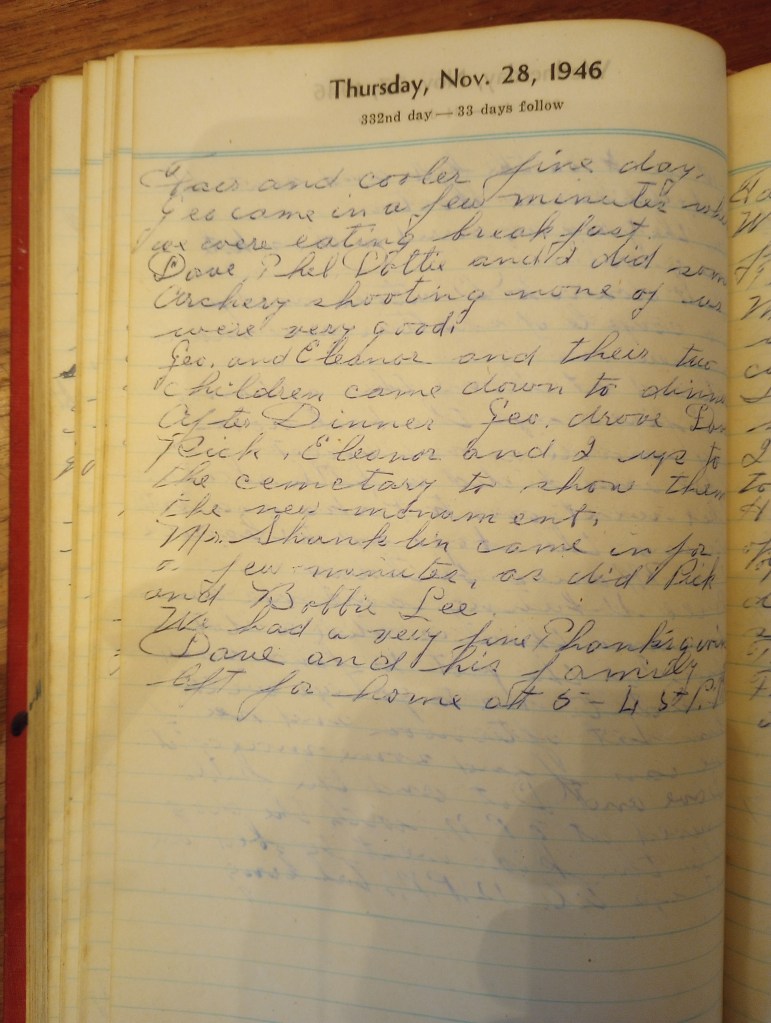 Thursday, Nov. 28, 1946
332nd day — 33 days follow
Fair and cooler fine day.
Geo came in a few minutes
we were eating breakfast.
Dave, Phel Dottie and I did
archery shooting none of us
were very good.
Geo. and Eleanor and their two
children came down to
After Dinner Geo. drove
Rick, Eleanor and I up to
the cemetary to show them
the new monument.
Mr. Shanklin came in for
a few minutes, as did Rick
and Bobbie Lee.
We had a very fine
Dave and his family
left for home at 5-45